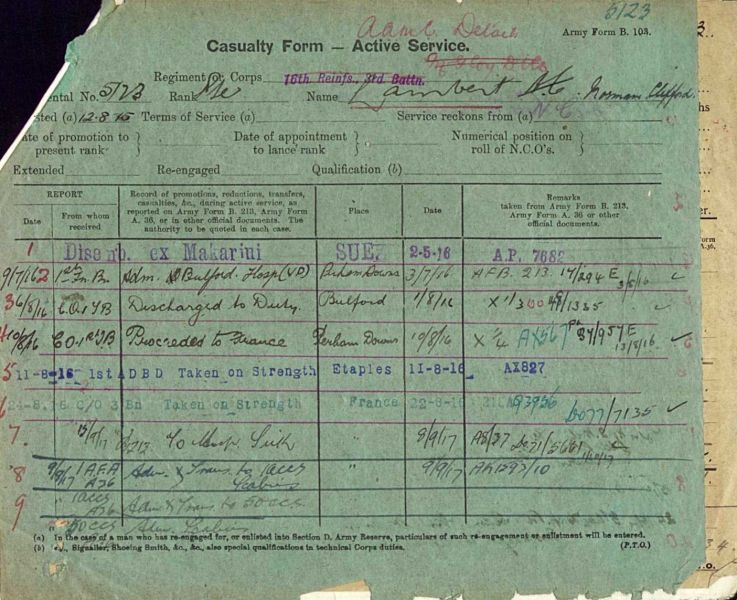 5123
A.A.M.C. Details
Army Form B. 103.
Casualty Form — Active Service.
Regiment or Corps 16th Reinfs., 3rd. Battn.
ental No. 5123 Rank Pte Name Lambert N. C. Norman Clifford
sted (a) 12-8-15 Terms of Service (a) Service reckons from (a)
ate of promotion to present rank } Date of appointment to lance rank } Numerical position on roll of N.C.O's. }
Extended Re-engaged Qualification (b)
REPORT
Date From whom received
Record of promotions, reductions, transfers, casualties, &c., during active service, as reported on Army Form B. 213, Army Form A. 36, or in other official documents. The authority to be quoted in each case.
Place
Date
Remarks taken from Army Form B. 213, Army Form A. 36 or other official documents.
1 Disemb. ex Makarini SUE. 2-5-16 A.P. 7682
9/7/16 2 1st Tn. Bn Adm. Bulford Hosp (VD) Perham Downs 3/7/16 A.F.B. 213. 14/294 E
3 6/8/16 C.O. 1 TB Discharged to Duty. Bulford 1/8/16
4 10/8/16 C.O. 1st TB Proceeded to France Perham Downs 10/8/16 AX567 34/957 E 13/8/16
5 11-8-16 1st ADBD Taken on Strength Etaples 11-8-16 AX827
6 24-8-16 C/O 3 Bn Taken on Strength France 22-8-16 A3956 6077/7135
7. 15/9/17 To Hosp. Sick 9/9/17
8 9/9/17 1 A.F.A A36 Adm. & Trans. to 10CCS Scabies 9/9/17
9 " 10CCS A36 Adm & Trans. to 50 CCS
" 50CCS Adm. Scabies
(a) In the case of a man who has re-engaged for, or enlisted into Section D. Army Reserve, particulars of such re-engagement or enlistment will be entered.
(b) e.g., Signaller, Shoeing Smith, &c., &c., also special qualifications in technical Corps duties. (P.T.O.)